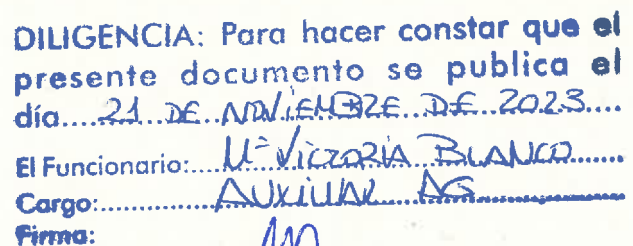 DILIGENCIA: Para hacer constar que el
presente documento se publica el
día....21 DE NOVIEMBRE DE 2023....
El Funcionario:....Mª VICTORIA BLANCO.......
Cargo:............AUXILIAR AG................
Firma: